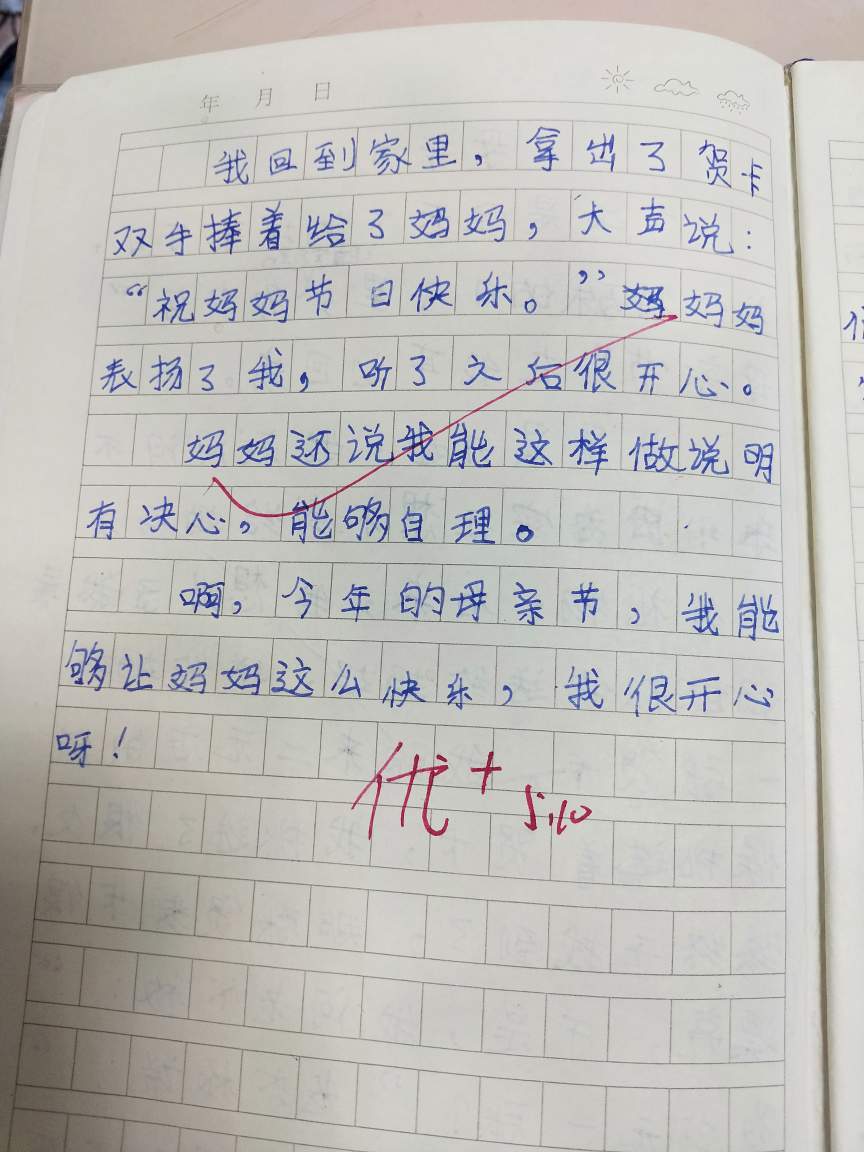 年 月 日
我回到家里，拿出了贺卡
双手捧着给了妈妈，大声说：
“祝妈妈节日快乐。”妈妈妈
表扬了我，听了之后很开心。
妈妈还说我能这样做说明
有决心，能够自理。
啊，今年的母亲节，我能
够让妈妈这么快乐，我很开心
呀！
优+
5.10